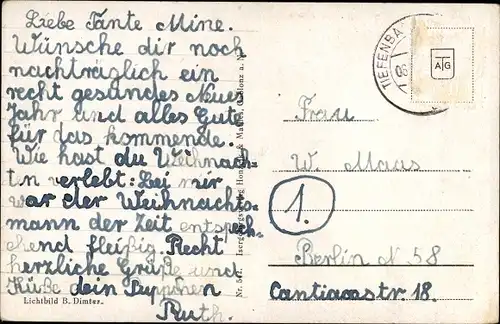 Liebe Tante Mine.
Wünsche dir noch
nachträglich ein
recht gesundes Neues
Jahr und alles Gute
für das kommende.
Wie hast du Weihnach-
ten verlebt: Bei mir
war der Weihnachts-
mann der Zeit entspech-
chend fleißig. Recht
herzliche Grüße und
Küße dein Puppchen
Ruth.
Lichtbild B. Dimter.
Nr. 547. Isergebirgsverlag
Gablonz a. N.
TIEFENBA
A G
Frau
W. Maas
1.
Berlin N 58
Cantianstr. 18.